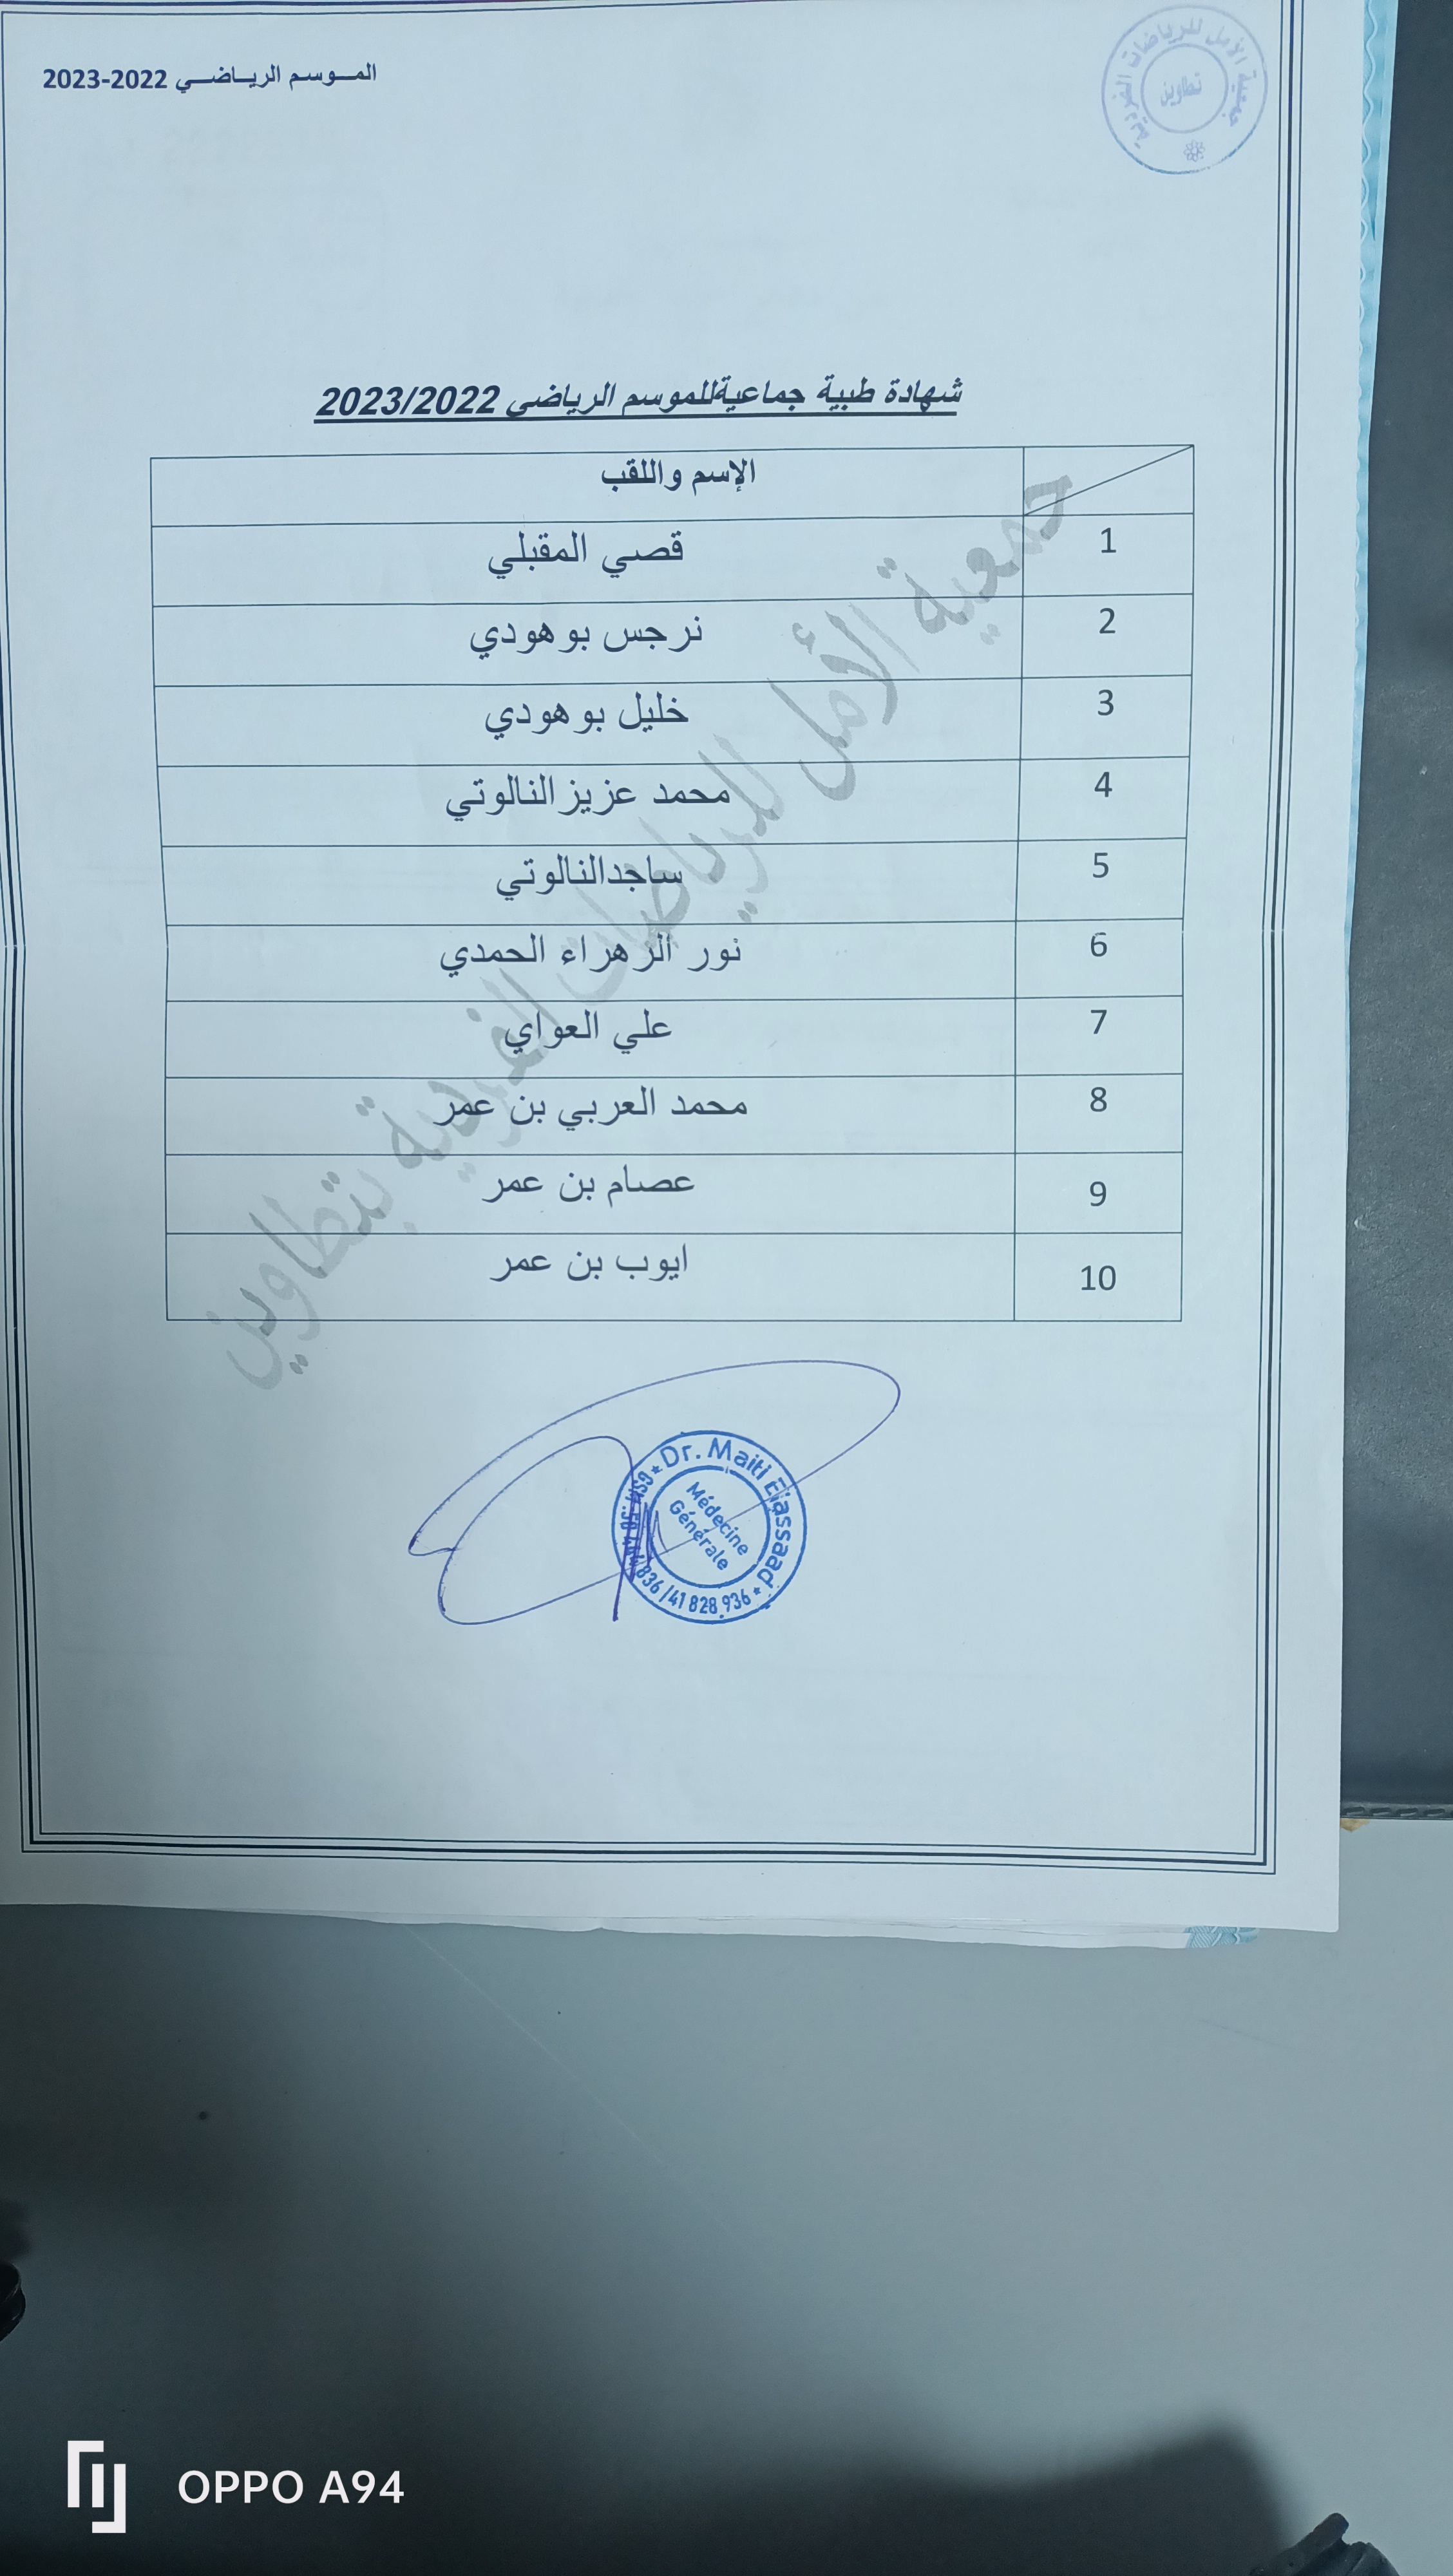 الموسم الرياضي 2022-2023
جمعية الأمل للرياضات الفردية
تطاوين
شهادة طبية جماعيةللموسم الرياضي 2023/2022
الإسم واللقب
1 قصي المقبلي
2 نرجس بوهودي
3 خليل بوهودي
4 محمد عزيزالنالوتي
5 ساجدالنالوتي
6 نور الزهراء الحمدي
7 علي العواي
8 محمد العربي بن عمر
9 عصام بن عمر
10 ايوب بن عمر
جمعية الأمل للرياضات الفردية بتطاوين
Dr. Maiti Elassaad
Médecine
Générale
836 /41 828 936
OPPO A94